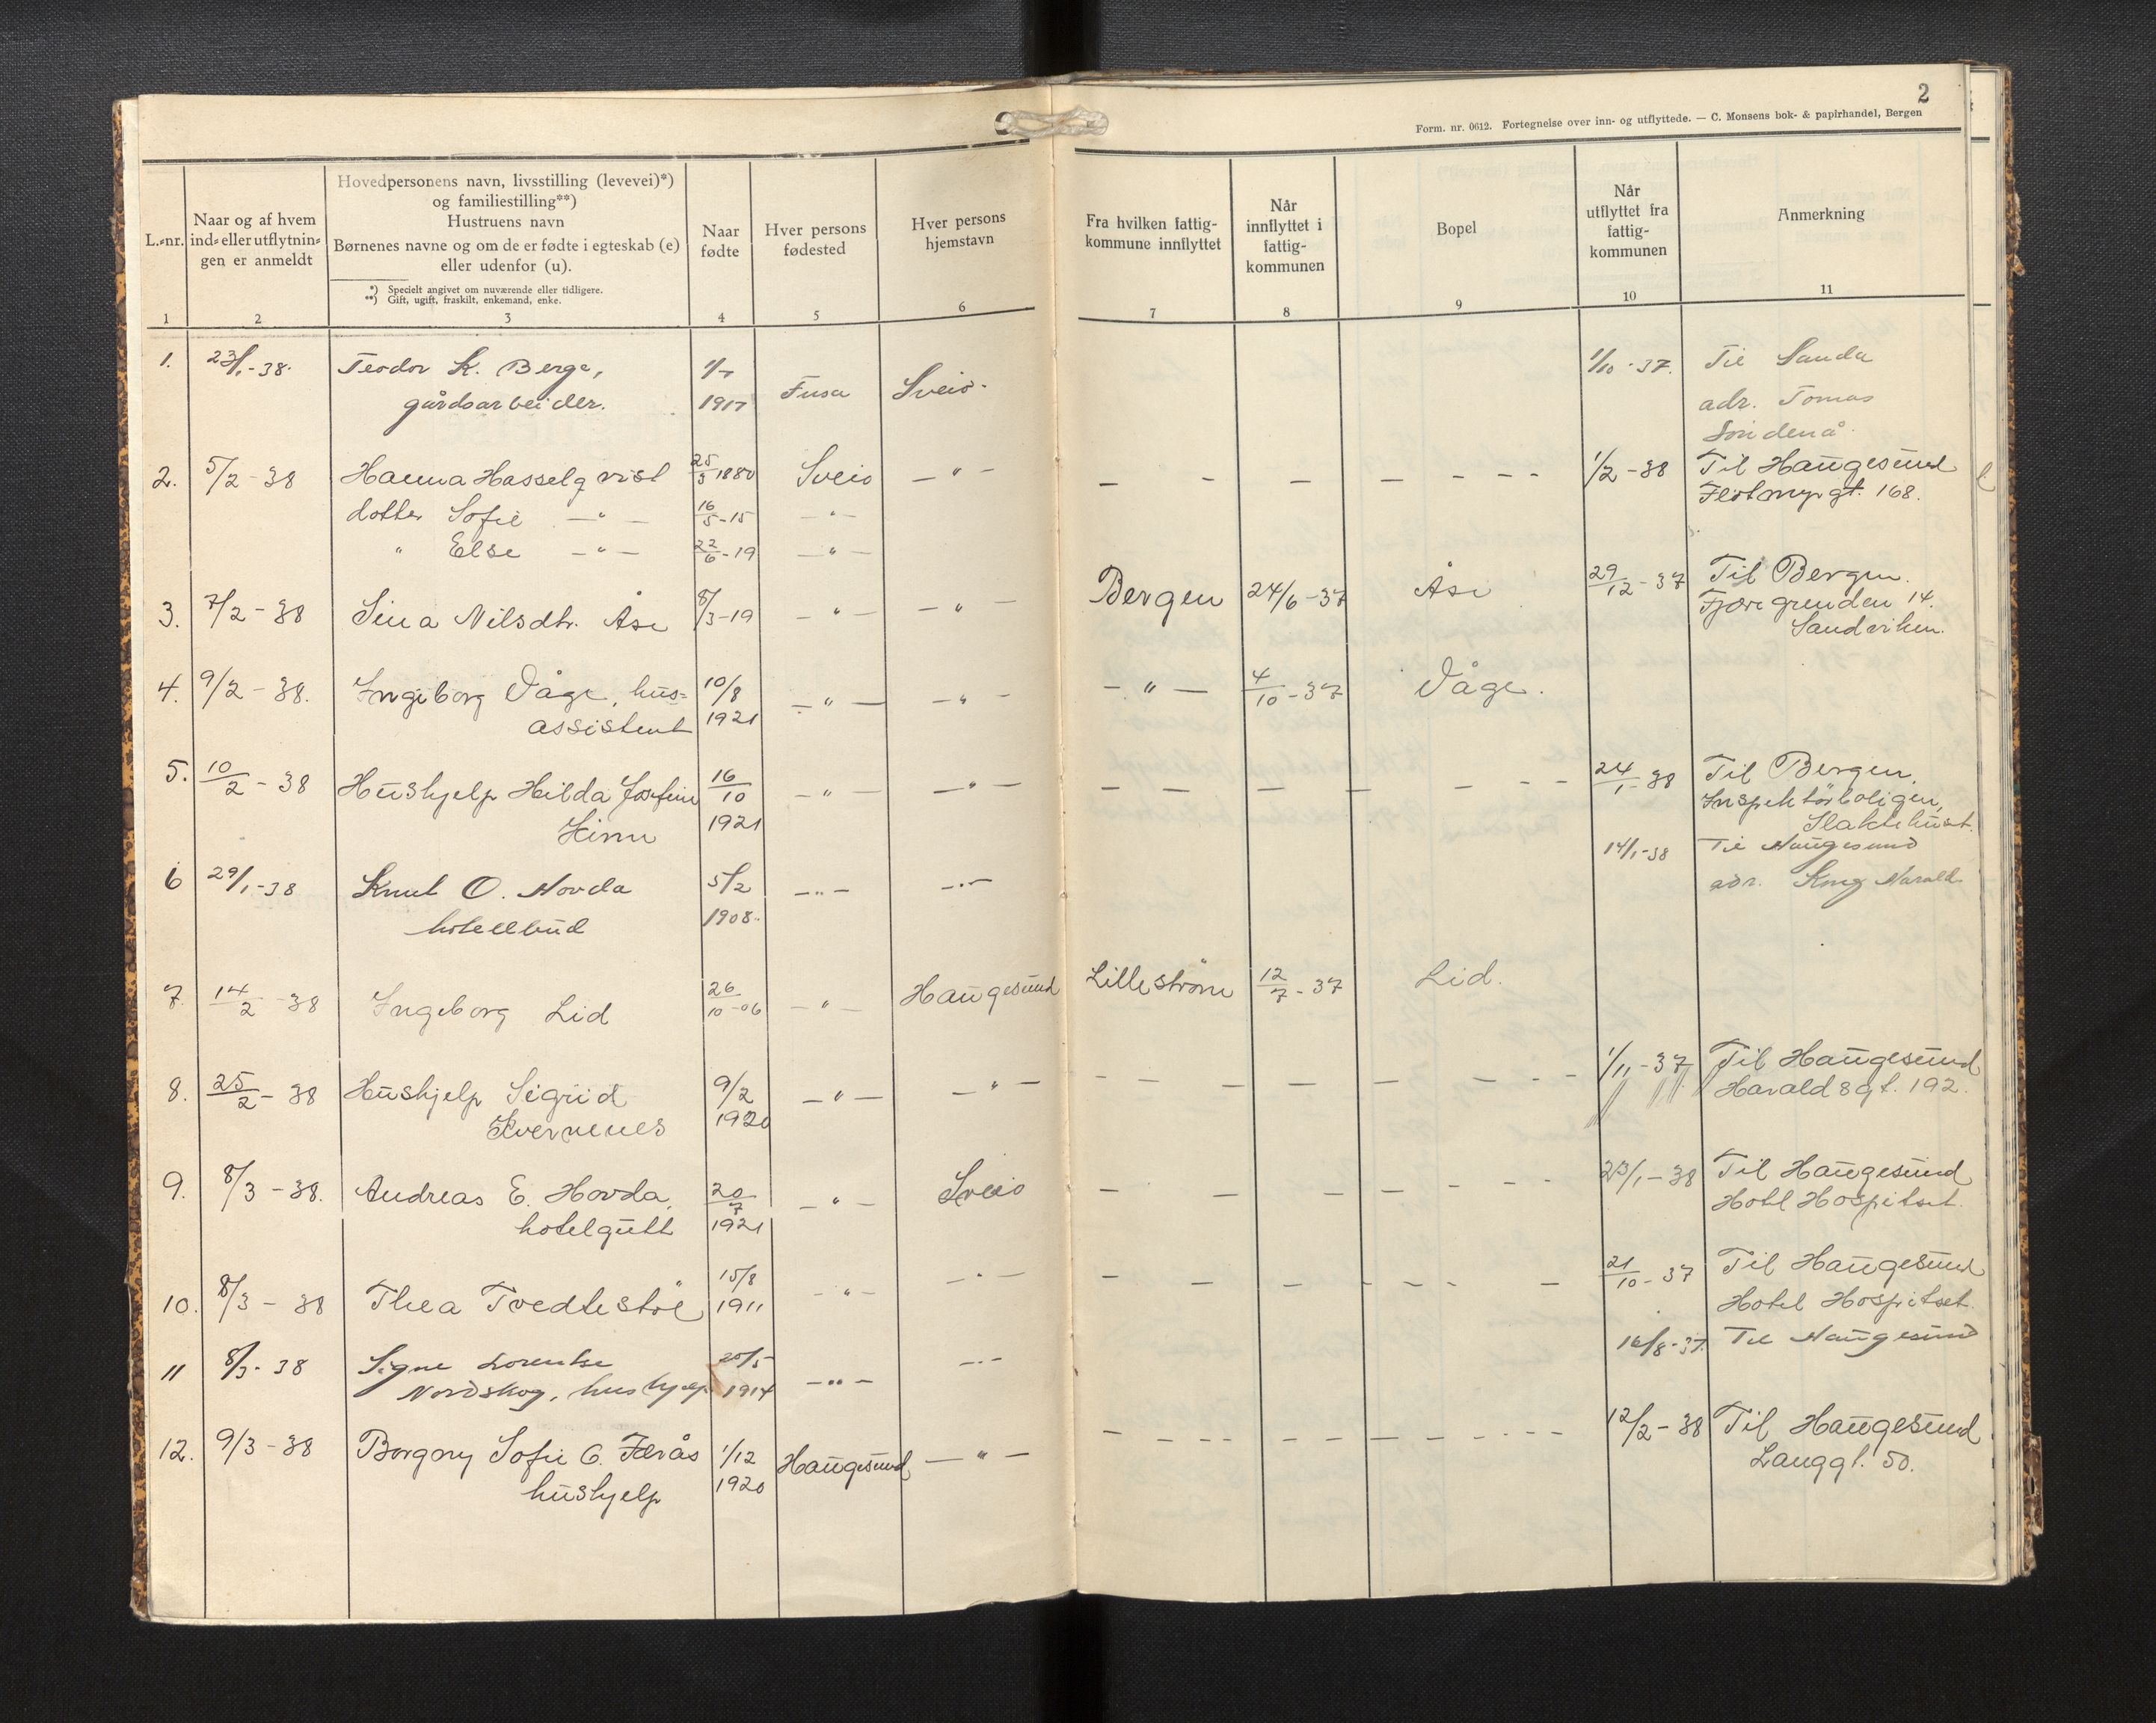 2
Form. nr. 0612. Fortegnelse over inn- og utflyttede. — C. Monsens bok- & papirhandel, Bergen
L.-nr.
Naar og af hvem
ind- eller utflytnin-
gen er anmeldt
Hovedpersonens navn, livsstilling (levevei)*)
og familiestilling**)
Hustruens navn
Børnenes navne og om de er fødte i egteskab (e)
eller udenfor (u).
*) Specielt angivet om nuværende eller tidligere.
**) Gift, ugift, fraskilt, enkemand, enke.
Naar
fødte
Hver persons
fødested
Hver persons
hjemstavn
Fra hvilken fattig-
kommune innflyttet
Når
innflyttet i
fattig-
kommunen
Bopel
Når
utflyttet fra
fattig-
kommunen
Anmerkning
1 2 3 4 5 6 7 8 9 10 11
1. 23/1-38. Teodor K. Berge, 1/7 Fusa Sveio. 1/10-37. Til Sauda
gårdsarbeider. 1917 adr. Tomas
2. 5/2-38 Hanna Hasselqvist 25/3 1880 Sveio — " — — — — — — — — 1/2-38 Til Haugesund
Flotmyrgt. 168.
dotter Sofie — " — 16/5-15 — " —
" Else — " — 22/6-19 — " —
3. 7/2-38 Sina Nilsdtr. Åse 8/3-19 — " — — " — Bergen 24/6-37 Åse 29/12-37 Til Bergen.
Fjæregrenden 14.
Sandviken.
4. 9/2-38. Ingeborg Våge, hus= 10/8 — " — — " — — " — 4/10-37 Våge.
assistent 1921
5. 10/2-38 Hushjelp Hilda Josefine 16/10 — " — — " — — — — — — — — 24/1-38 Til Bergen,
Inspektörboligen,
1921 Slaktehuset.
6 29/1-38 Knut O. Hovda 5/2 — " — — " — 14/1-38 Til Haugesund
hotellbud 1908. adr. Kong Harald.
7. 14/2-38 Ingeborg Lid 26/10-06 — " — Haugesund Lilleström 12/7-37 Lid.
8. 25/2-38 Hushjelp Sigrid 9/2 — " — — " — — — — — — — — — 1/11-37 Til Haugesund
Kvernenes 1920 Haraldsgt. 192.
9. 8/3-38. Andreas E. Hovda, 20/7 — " — Sveio — — — — — — — 23/1-38 Til Haugesund
hotelgutt 1921 Hotel Hospitset.
10. 8/3-38 Thea Tvedtestöl 15/8 — " — — " — — — — — — — — 21/10-37 Til Haugesund
1911 Hotel Hospitset.
11 8/3-38 Signe Lorentse 20/5 — " — — " — 16/8-37. Til Haugesund
Nordskog, hushjelp 1914
12. 9/3-38 Borgny Sofie O. Færås 1/12 Haugesund — " — — — — — — — — — 12/2-38 Til Haugesund
hushjelp 1920 Langgt. 50.